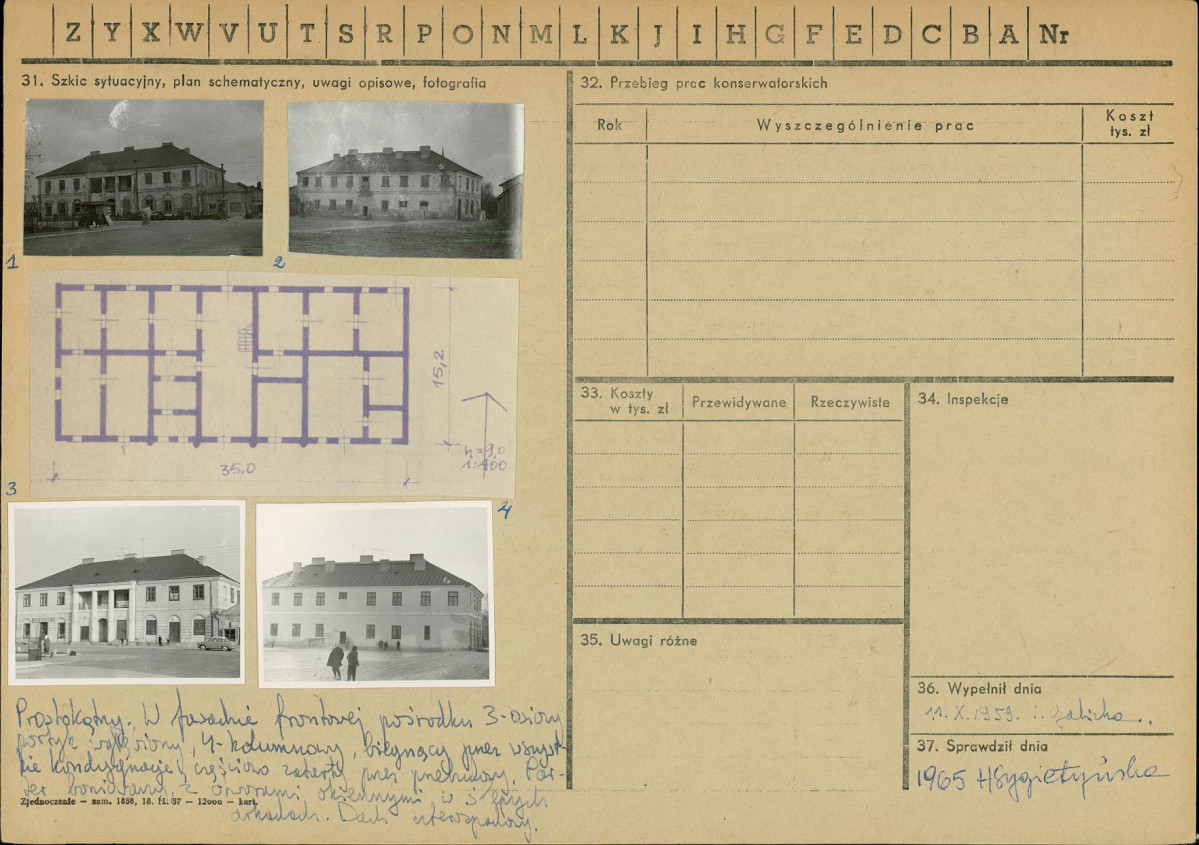 Z Y X W V U T S R P O N M L K J I H G F E D C B A Nr
31. Szkic sytuacyjny, plan schematyczny, uwagi opisowe, fotografia
1
2
15,2
35,0
h=9,0
1:400
3
4
Prostokątny. W fasadzie frontowej pośrodku 3-osiowy
portyk wgłębiony, 4-kolumnowy, biegnący przez wszyst-
kie kondygnacje, częściowo zatarty przez przebudowy. Par-
ter boniowany, z otworami okiennymi w ślepych
arkadach. Dach czterospadowy.
Zjednoczenie — zam. 1858, 18. II. 57 — 12000 — kart.
32. Przebieg prac konserwatorskich
Rok
Wyszczególnienie prac
Koszt
tys. zł
33. Koszty
w tys. zł
Przewidywane
Rzeczywiste
34. Inspekcje
35. Uwagi różne
36. Wypełnił dnia
11. X. 1959. I. Galicka
37. Sprawdził dnia
1965 HSygietyńska